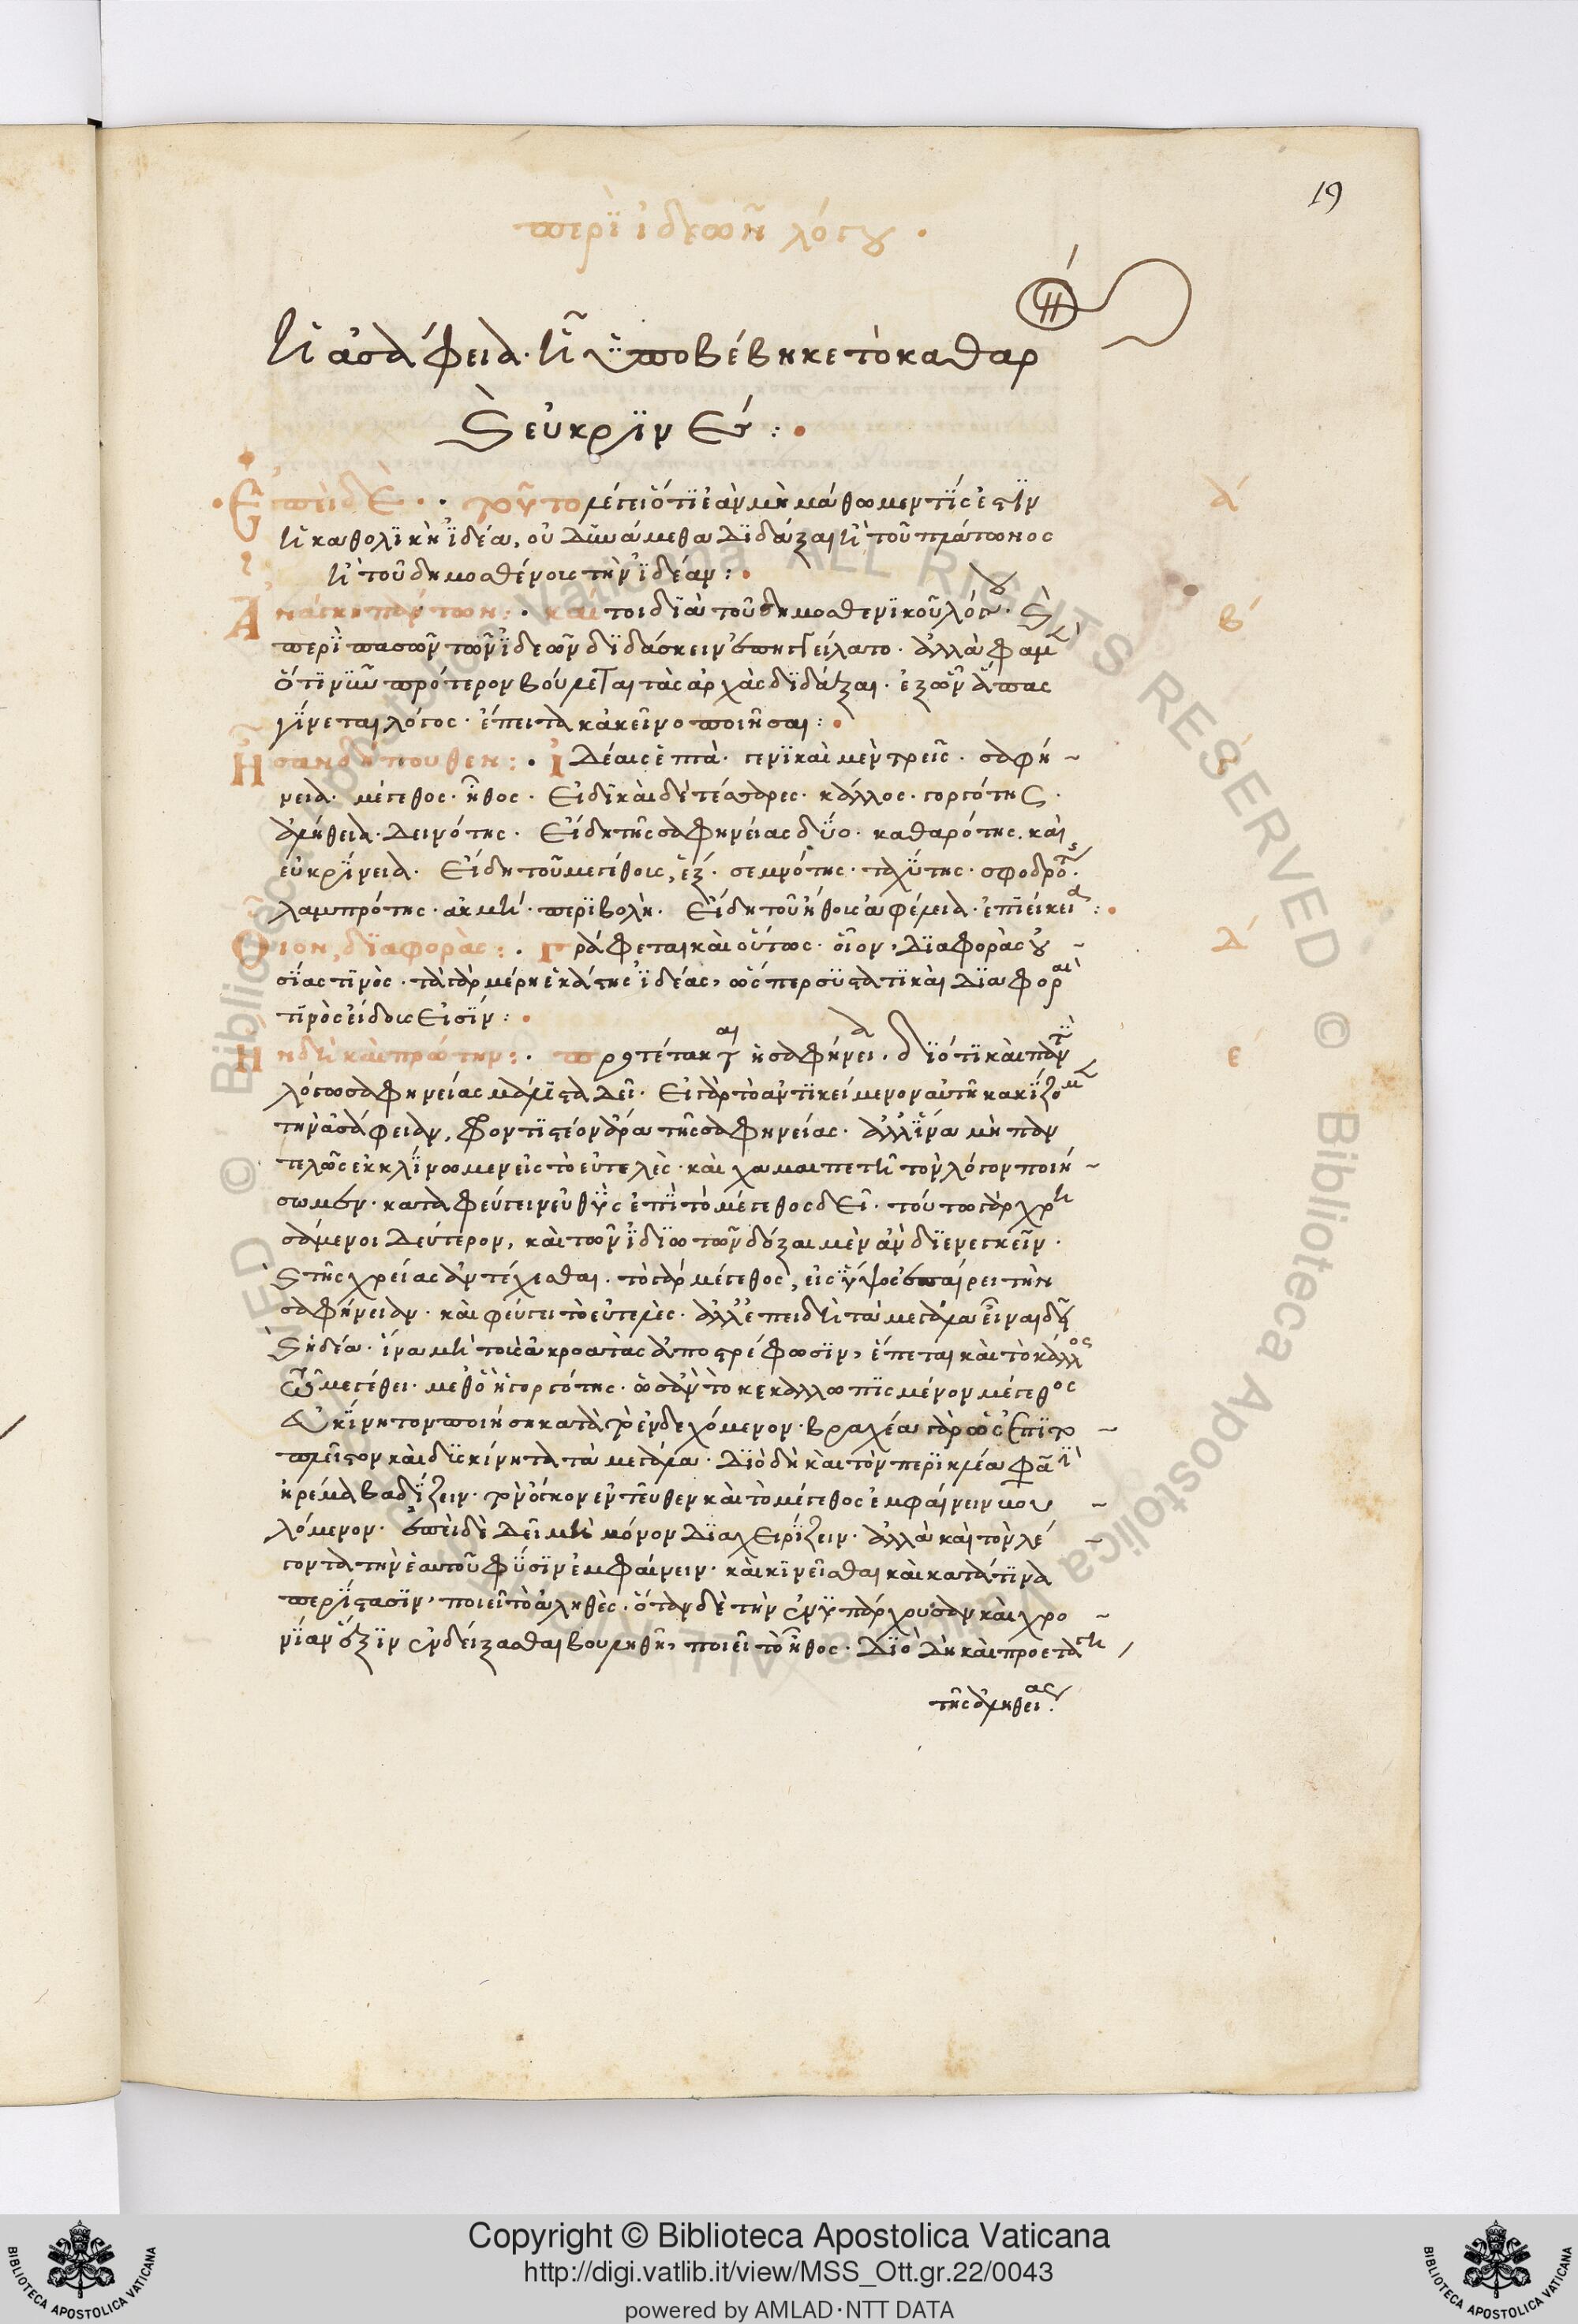 19
περὶ ἰδεῶν λόγου.
ἡ ἀσάφεια. ᾗ ὑποβέβηκε τὸ καθαρ
καὶ εὐκρινές:.
Ἐπειδὲ.. τοῦτο λέγει ὅτι ἐὰν μὴ μάθωμεν τίς ἐστὶν
α´
ἡ καθολικὴ ἰδέα, οὐ δυνάμεθα διδάξαι ἢ τοῦ πλάτωνος
ἢ τοῦ δημοσθένους τὴν ἰδέαν:.
Ἀνάγκη πάντων:. καί τοι διὰ τοῦ δημοσθενικοῦ λόγου. καὶ
β´
περὶ πασῶν τῶν ἰδεῶν διδάσκειν ἐπηγγείλατο. ἀλλὰ φαμὲν
ὅτι νῦν πρότερον βούλεται τὰς ἀρχὰς διδάξαι. ἐξ ὧν ἅπας
γίνεται λόγος. ἔπειτα κἀκεῖνο ποιῆσαι:.
Ἦσαν δήπουθεν:. ἰδέαι ἑπτά. γενικαὶ μὲν τρεῖς. σαφή-
γ´
νεια. μέγεθος. ἦθος. Εἰδικαὶ δὲ τέσσαρες. κάλλος. γοργότης.
ἀλήθεια. δεινότης. Εἴδη τῆς σαφηνείας δύο. καθαρότης. καὶ
εὐκρίνεια. Εἴδη τοῦ μεγέθους, ἕξ. σεμνότης. ταχύτης. σφοδρότης.
λαμπρότης. ἀκμή. περιβολή. Εἴδη τοῦ ἤθους ἀφέλεια. ἐπιείκεια:.
Οἷον, διαφορὰς:. Γράφεται καὶ οὕτως. οἷον, διαφορὰς οὐ-
δ´
σίας τινὸς. τὰ γὰρ μέρη ἑκάστης ἰδέας, ὥσπερ συστατικαὶ διαφοραὶ
τινὸς εἴδους εἰσίν:.
Ἣν δὴ καὶ πρώτην:. προτέτακται ἡ σαφήνεια. διότι καὶ παντὶ
ε´
λόγω σαφηνείας μάλιστα δεῖ. Εἰ γὰρ τὸ ἀντικείμενον αὐτῆ κακίζομεν
τὴν ἀσάφειαν, φροντιστέον ἄρα τῆς σαφηνείας. ἀλλ' ἵνα μὴ παν
τελῶς ἐκκλίνωμεν εἰς τὸ εὐτελὲς. καὶ χαμαιπετῆ τὸν λόγον ποιή-
σωμεν. καταφεύγειν εὐθὺς ἐπὶ τὸ μέγεθος δεῖ. τούτω γὰρ χρη
σάμενοι δεύτερον, καὶ τῶν ἰδιωτῶν δόξαιμεν ἂν διενεγκεῖν.
καὶ τῆς χρείας ἀντέχεσθαι. τὸ γὰρ μέγεθος, εἰς ὕψος ἐπαίρει τὴν
σαφήνειαν. καὶ φεύγει τὸ εὐτελές. ἀλλ' ἐπειδὴ τὰ μεγάλα εἶναι δεῖ
καὶ ἡδέα. ἵνα μὴ τοὺς ἀκροατὰς ἀποστρέφωσιν, ἕπεται καὶ τὸ κάλλος
τῷ μεγέθει. μεθ' ὃ ἡ γοργότης. ὡς ἂν τὸ κεκαλλωπισμένον μέγεθος
εὐκίνητον ποιήση κατὰ τὸ ἐνδεχόμενον. βραχέα γὰρ ὡς ἐπὶ το-
πλεῖστον καὶ δυσκίνητα τὰ μεγάλα. διὸ δὴ καὶ τὸν περικλέα φασὶ
ἠρέμα βαδίζειν. τὸν ὄγκον ἐντεῦθεν καὶ τὸ μέγεθος ἐμφαίνειν βου-
λόμενον. ἐπειδὴ δεῖ μὴ μόνον διαχειρίζειν. ἀλλὰ καὶ τὸν λέ-
γοντα τὴν ἑαυτοῦ φύσιν ἐμφαίνειν. καὶ κινεῖσθαι καὶ κατά τινα
περίστασιν, ποιεῖ τὸ ἀληθές. ὅταν δὲ τὴν ἐνυπάρχουσαν καὶ χρο-
νίαν ἕξιν ἐνδείξασθαι βουληθῆ, ποιεῖ τὸ ἦθος. διὸ δὴ καὶ προετάγη
τῆς ἀληθείας.
Copyright © Biblioteca Apostolica Vaticana
http://digi.vatlib.it/view/MSS_Ott.gr.22/0043
powered by AMLAD·NTT DATA
BIBLIOTECA APOSTOLICA VATICANA
BIBLIOTECA APOSTOLICA VATICANA